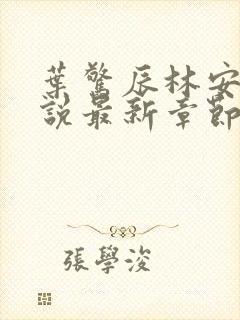 葉驚辰林安
說最新章節
張學浚